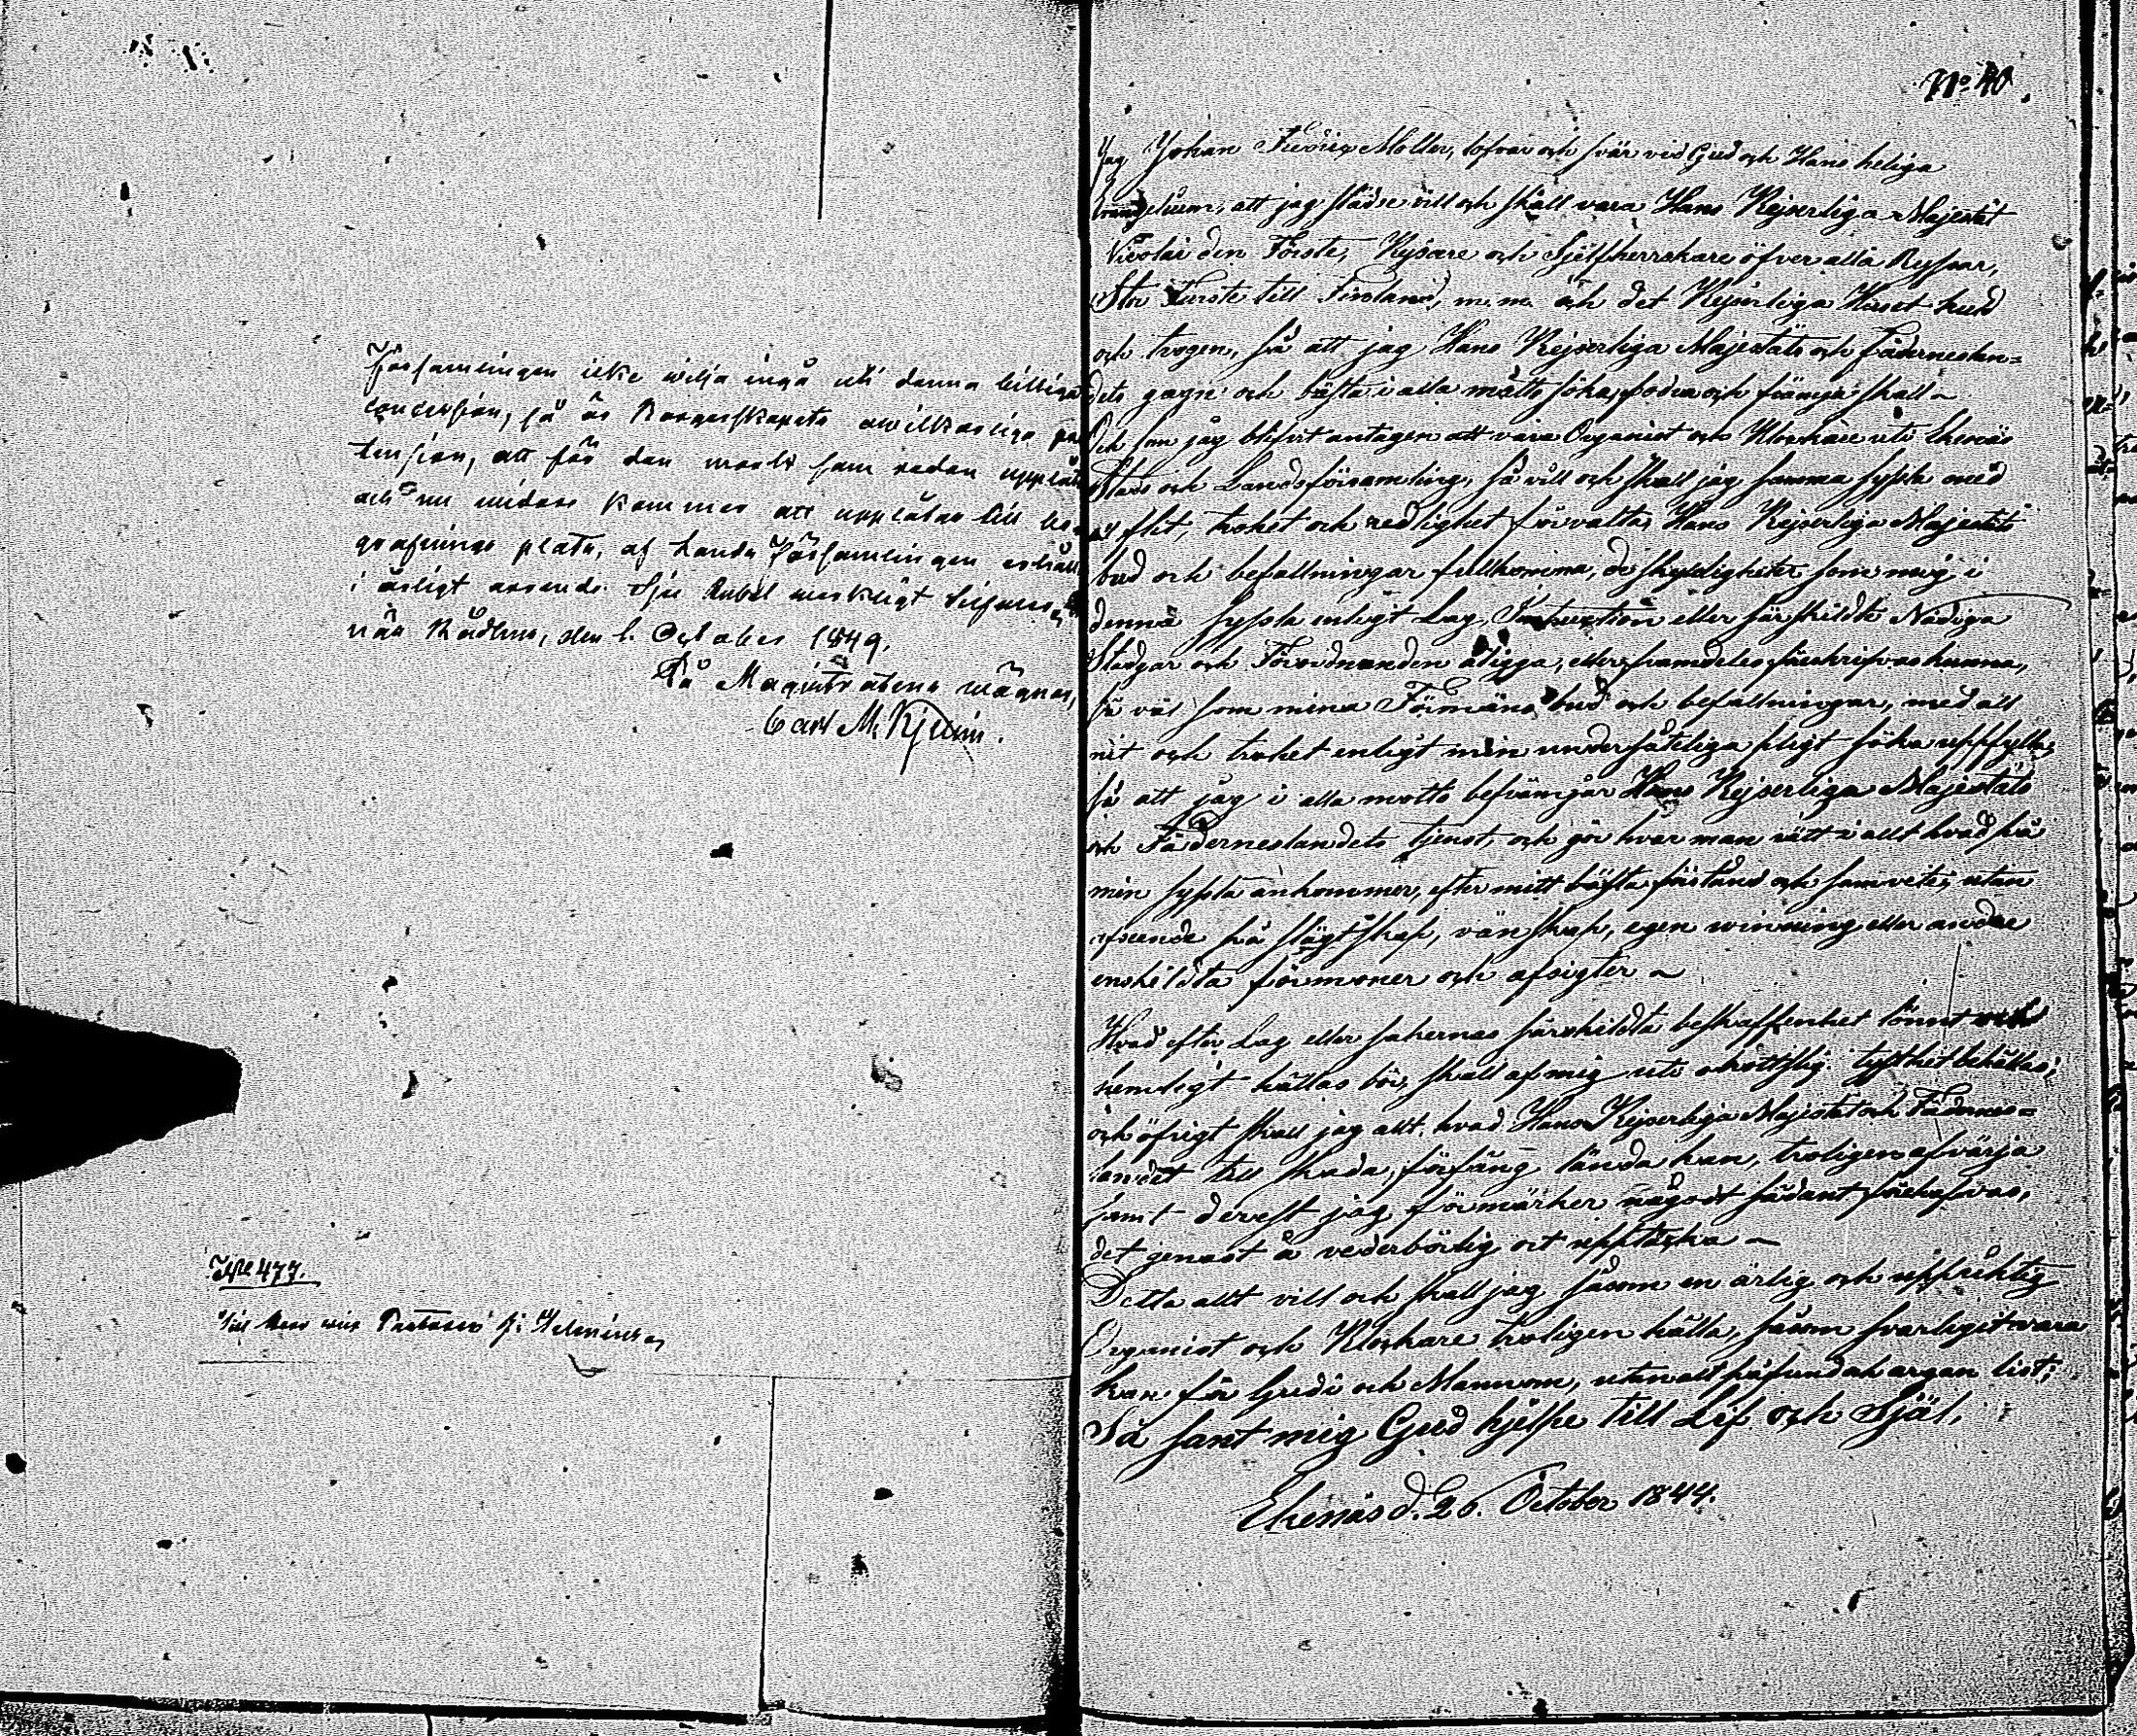 Församlingen icke wilja ingå uti denna billiga
concession, så är Borgerskapets owilkorliga pre
tension, att för den mark som redan upplåtits
och nu vidare kommer att upplåtas till be
grafnings plats, af Lands Församlingen erhålla
i årligt arrende Sju Rubel Silfver
näs Rådhus, den 1. October 1849.
På Magistratens wägnar,
Carl M. Kjemin.
477.
Till Herr Pastoren
No 40.
Jag Johan Fredric Möller, lofvar och svär vid Gud och Hans heliga
Evangelium, att jag städse vill och skall vara Hans Kejserliga Majestät
Nicolai den Förste, Kejsare och Sjelfherrskare öfver alla Ryssar,
Stor Furste till Finland, m.m. och det Kejserliga Huset huld
och trogen, så att jag Hans Kejserliga Majestäts och Fäderneslan=
dets gagn och bästa i alla måtto söka, fodra och främja skall ~
Och som jag blifvit antagen att vara Organist och Klockare uti Ekenäs
Stads och Landsförsamling, så vill och skall jag samma syssla med
all flit, trohet och redlighet förvalta, Hans Kejserliga Majestäts
bud och befallningar fullkomna, de skyldigheter som mig i
denna syssla enligt Lag, Instruction eller särskildte Nådiga
Stadgar och Förordnanden åligga, eller framdeles föreskrifvas kunna,
så väl som mina Förmäns bud och befallningar, med all
nit och trohet enligt min undersåteliga pligt söka uppfylla,
så att jag i alla motto befrämjar Hans Kejserliga Majestäts
och Fäderneslandets tjenst, och gör hvar man rätt i allt hvad på
min syssla ankommer, efter mitt bästa förstånd och samvete, utan
afseende på slägtskap, vänskap, egen winning eller andre
enskildta förmoner och afsigter ~
Hvad efter Lag eller sakernas särskildta beskaffenhet lönnt och
hemligt hållas bör, skall af mig uti obrottslig tysthet behållas;
och öfrigt skall jag allt, hvad Hans Kejserliga Majestät och Fädernes=
landet till skada, förfång lända kan, troligen afvärja
samt derest jag förmärker något sådant förehafvas,
det genast å vederbörlig ort upptäcka ~
Detta allt vill och skall jag såsom en ärlig och uppriktig
Organist och Klockare troligen hålla, såsom svarligit vara
kan för Gudi och Mannom, utan all påfund ok argan list;
Så sant mig Gud hjelpe till Lif och Själ.
Ekenäs d. 26. October 1844.